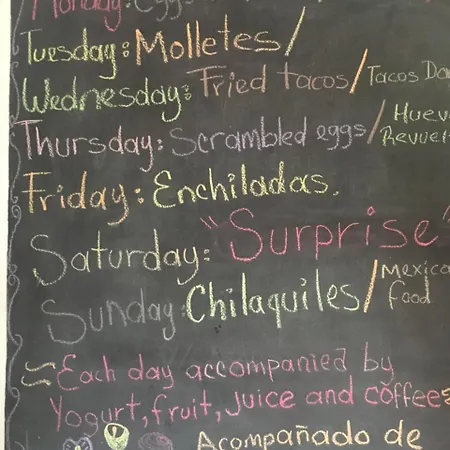 Monday: Eggs
Tuesday: Molletes/
Wednesday: Fried tacos/Tacos Do
Thursday: Scrambled eggs/Huev
Revuel
Friday: Enchiladas.
Saturday: "Surprise"
Sunday: Chilaquiles/Mexica
food
Each day accompanied by
Yogurt, fruit, juice and coffee
Acompañado de